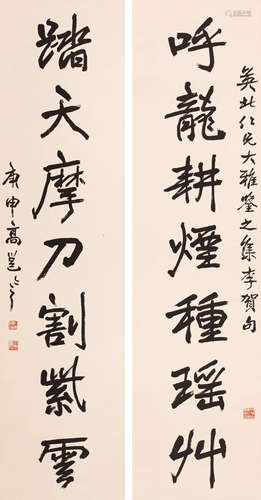 英北仁兄大雅鑒之集李賀句
呼龍耕煙種瑶艸
踏天摩刀割紫雲
庚申高邕